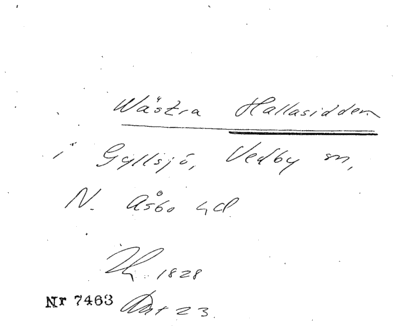 Wästra Hallasidden
i Gyllsjö, Vedby sn,
N. Åsbo hd
1828
Nr 7463 23.